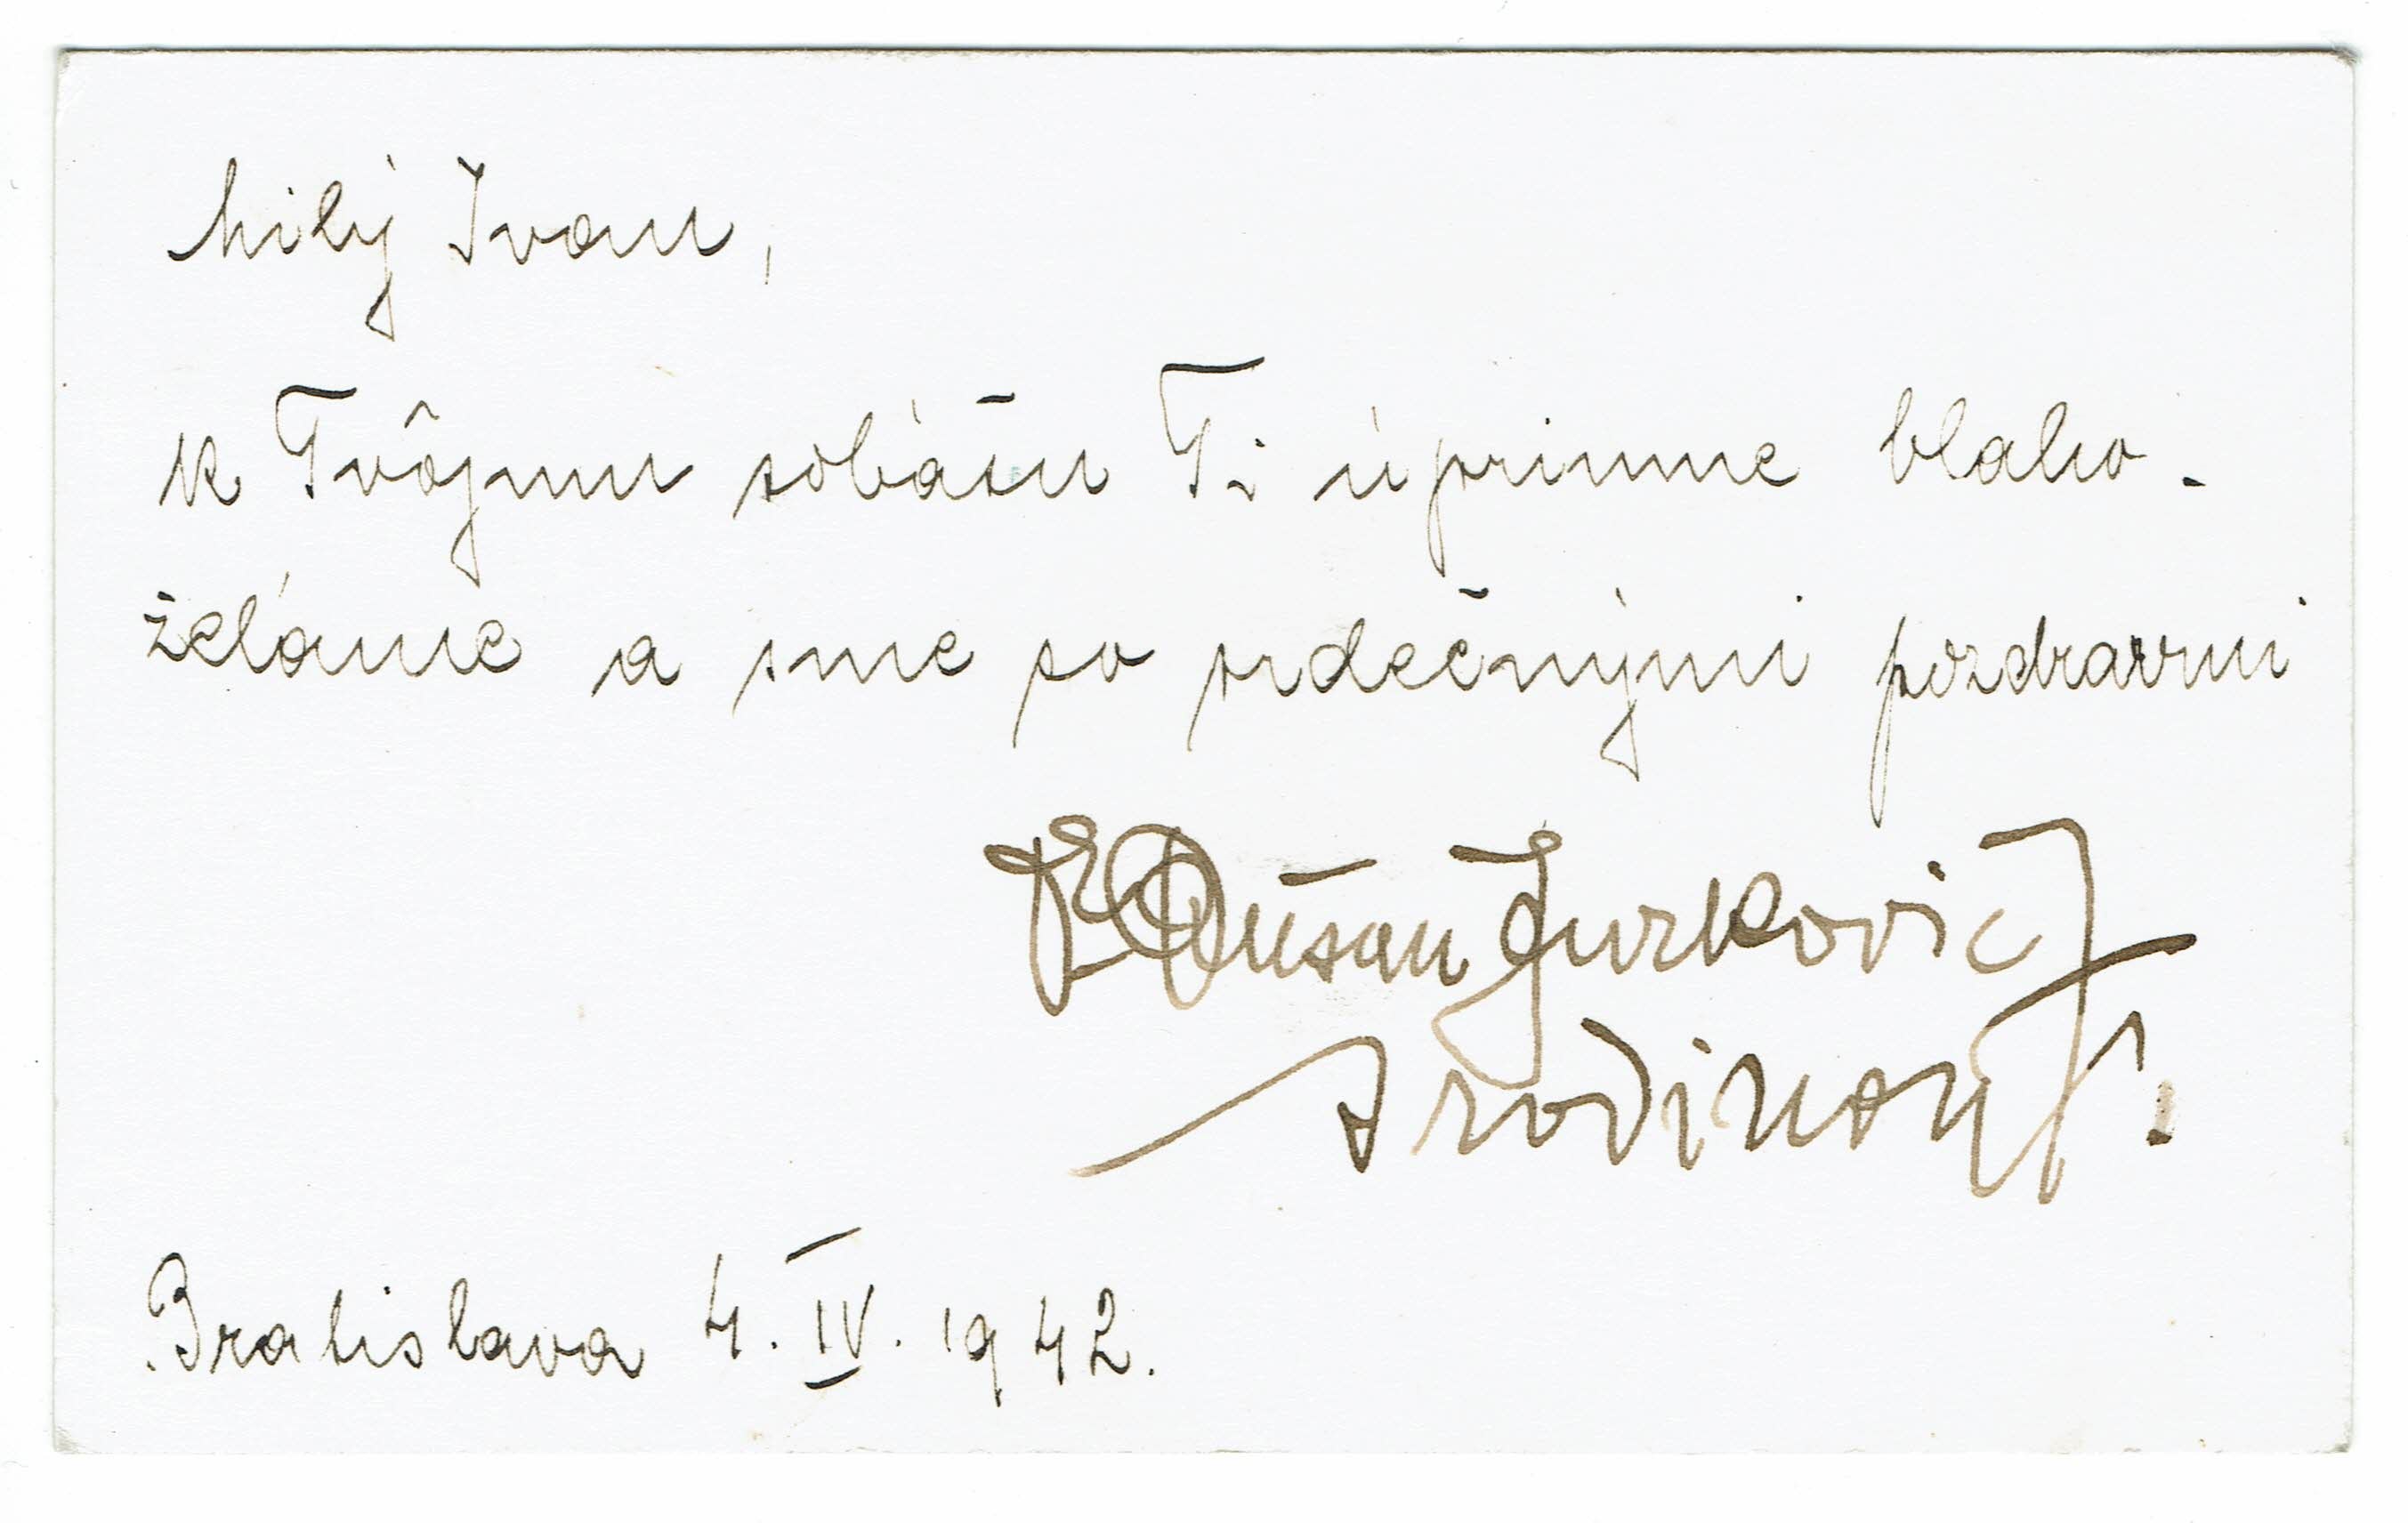 Milý Ivan,
k Tvôjmu sobášu Ti úprimne blaho-
želáme a sme so srdečnými pozdravmi
Dušan Jurkovič
s rodinou.
Bratislava 4. IV. 1942.